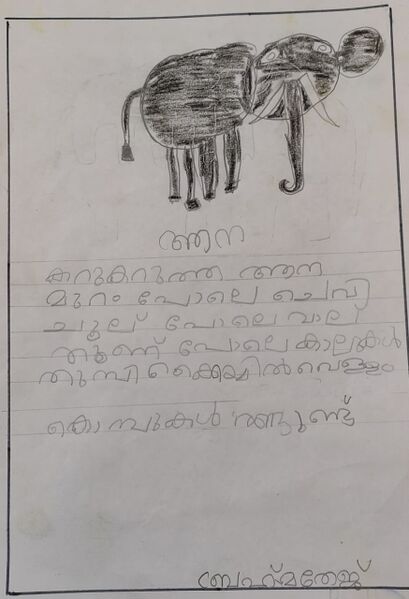 ആന
കറുകറുത്ത ആന
മുറം പോലെ ചെവി
ചൂല് പോലെ വാല്
തൂണ് പോലെ കാലുകൾ
തുമ്പിക്കൈയ്യിൽ വെള്ളം
കൊമ്പുകൾ രണ്ടുണ്ട്